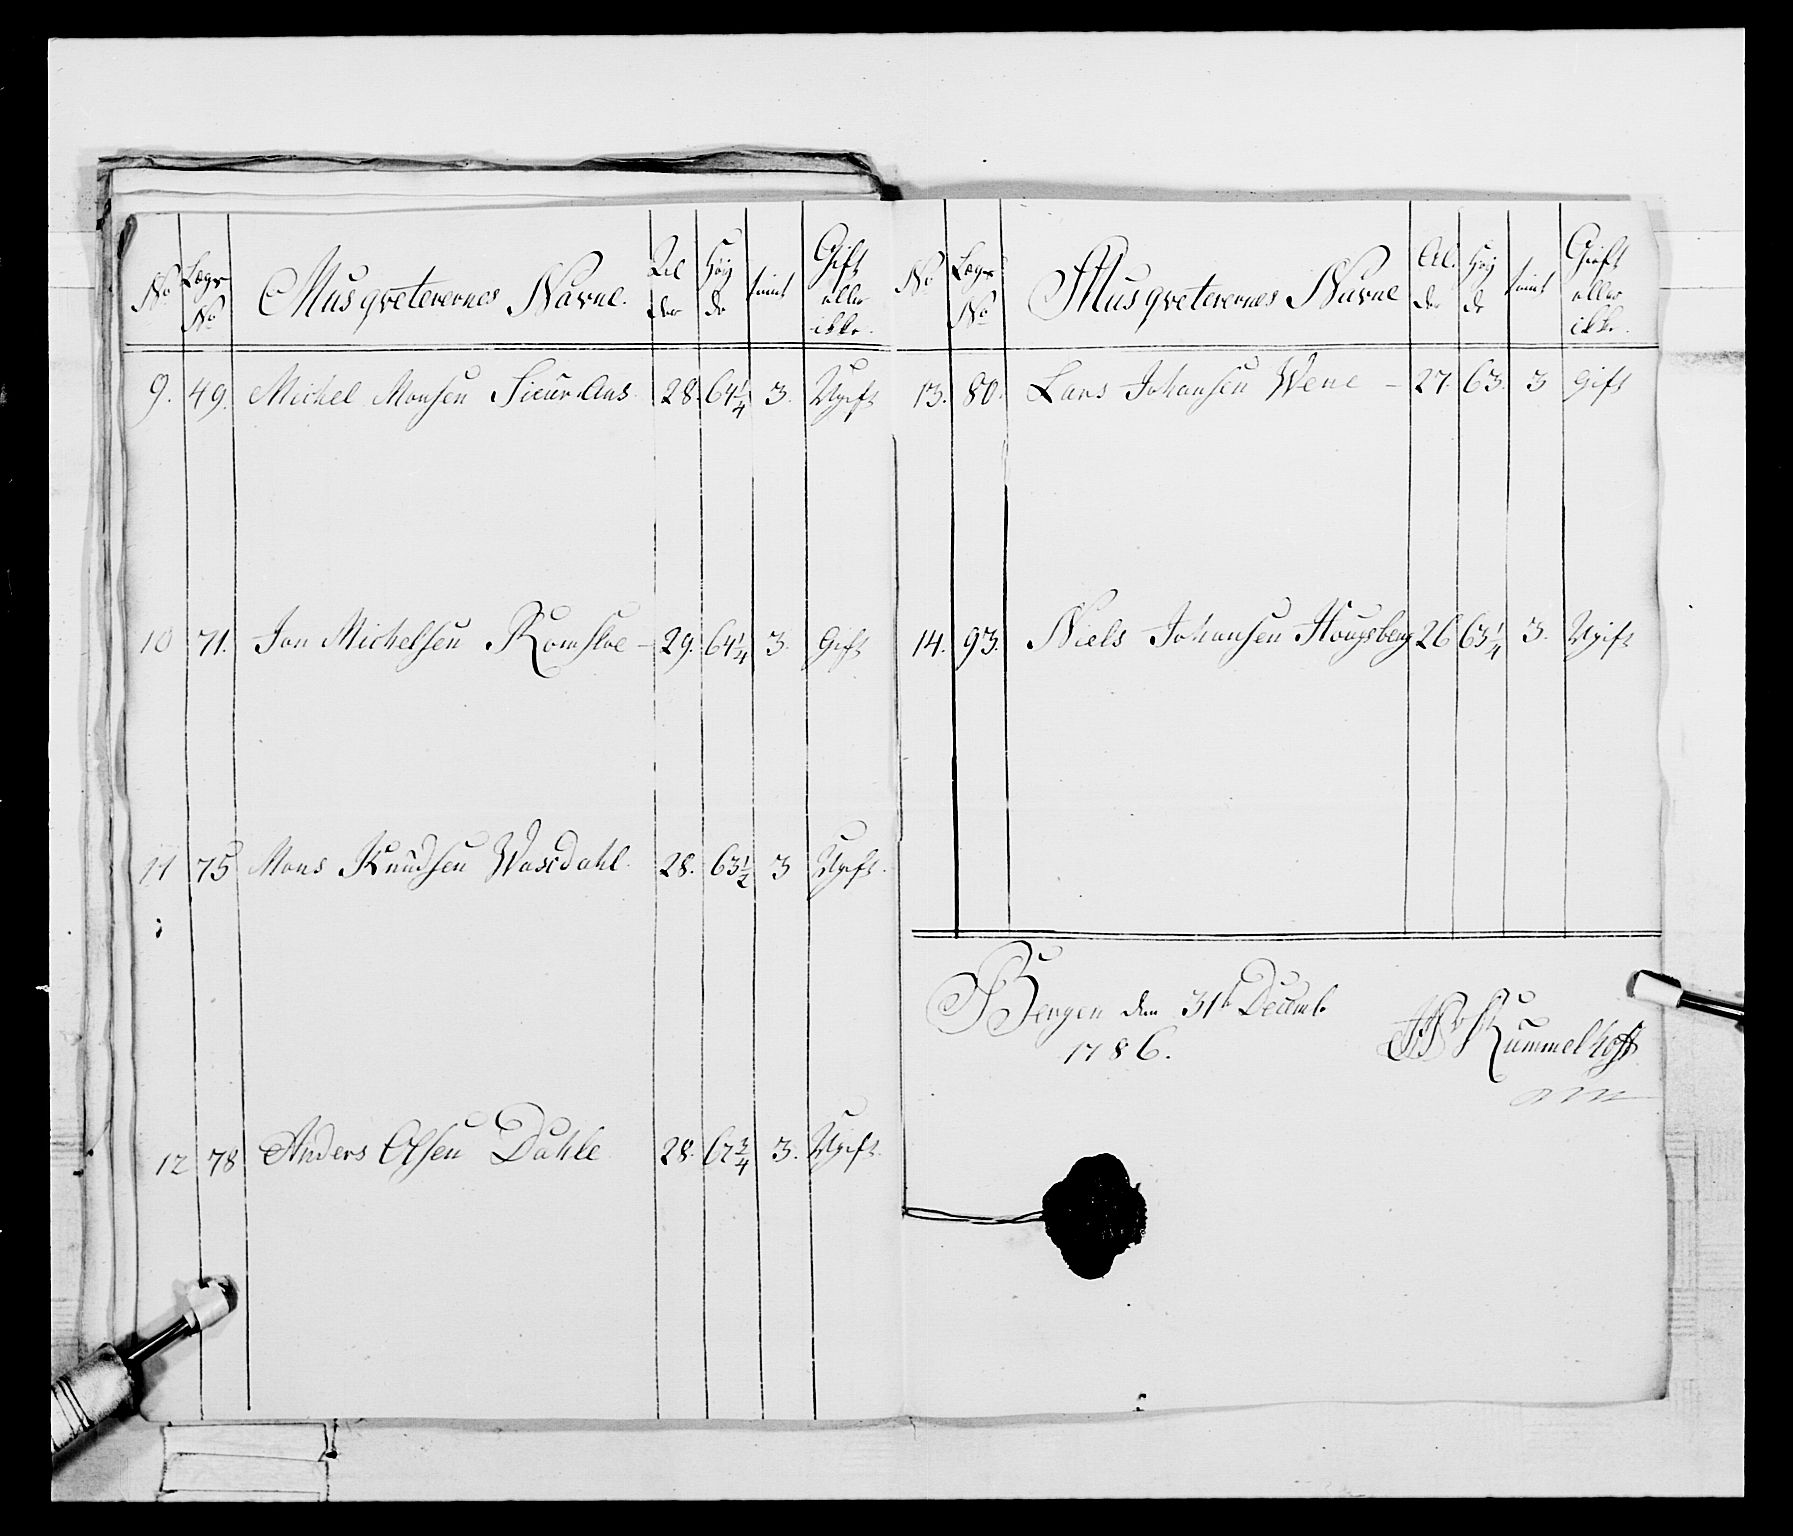 No Lægs No Musqveterernes Navne. Alder Høyde tient Gift eller ikke.
9. 49. Michel Monsen 28. 64 1/4 3. Ugift
10 71. Jon Michelsen Romsloe - 29. 64 1/4 3. Gift
11 75 Mons Knudsen Wasdahl. 28. 63 1/2 3 Ugift.
12 78 Anders Olsen Dahle 28. 62 3/4 3. Ugift.
No Lægs No Musqveterernes Navne Alder Høyde tient Gift eller ikke.
13. 80. Lars Johansen Wene - 27. 63. 3 Gift
14. 93. Niels Johansen Hougsberg 26 63 1/4 3. Ugift
Bergen den 31te Decemb.
1786.
Kummelhoff